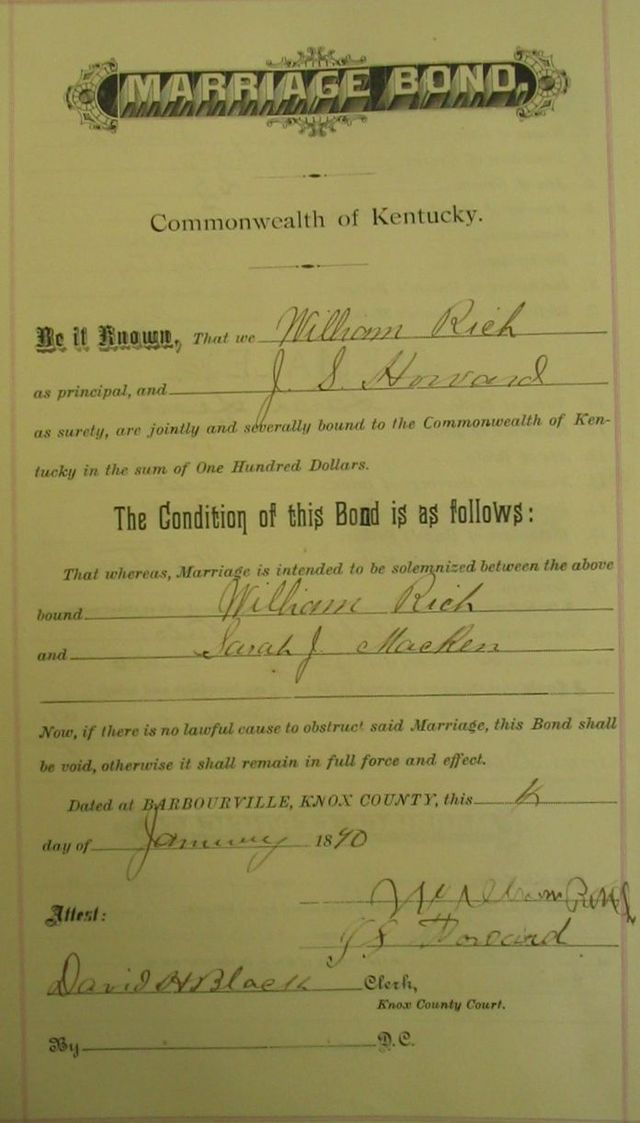 MARRIAGE BOND.
Commonwealth of Kentucky.
Be it Known, That we William Rich
as principal, and J. S. Howard
as surety, are jointly and severally bound to the Commonwealth of Ken-
tucky in the sum of One Hundred Dollars.
The Condition of this Bond is as follows:
That whereas, Marriage is intended to be solemnized between the above
bound William Rich
and Sarah J. MacKen
Now, if there is no lawful cause to obstruct said Marriage, this Bond shall
be void, otherwise it shall remain in full force and effect.
Dated at BARBOURVILLE, KNOX COUNTY, this
day of January 1890
William
Attest:
J S Howard
David H Black Clerk,
Knox County Court.
By D.C.